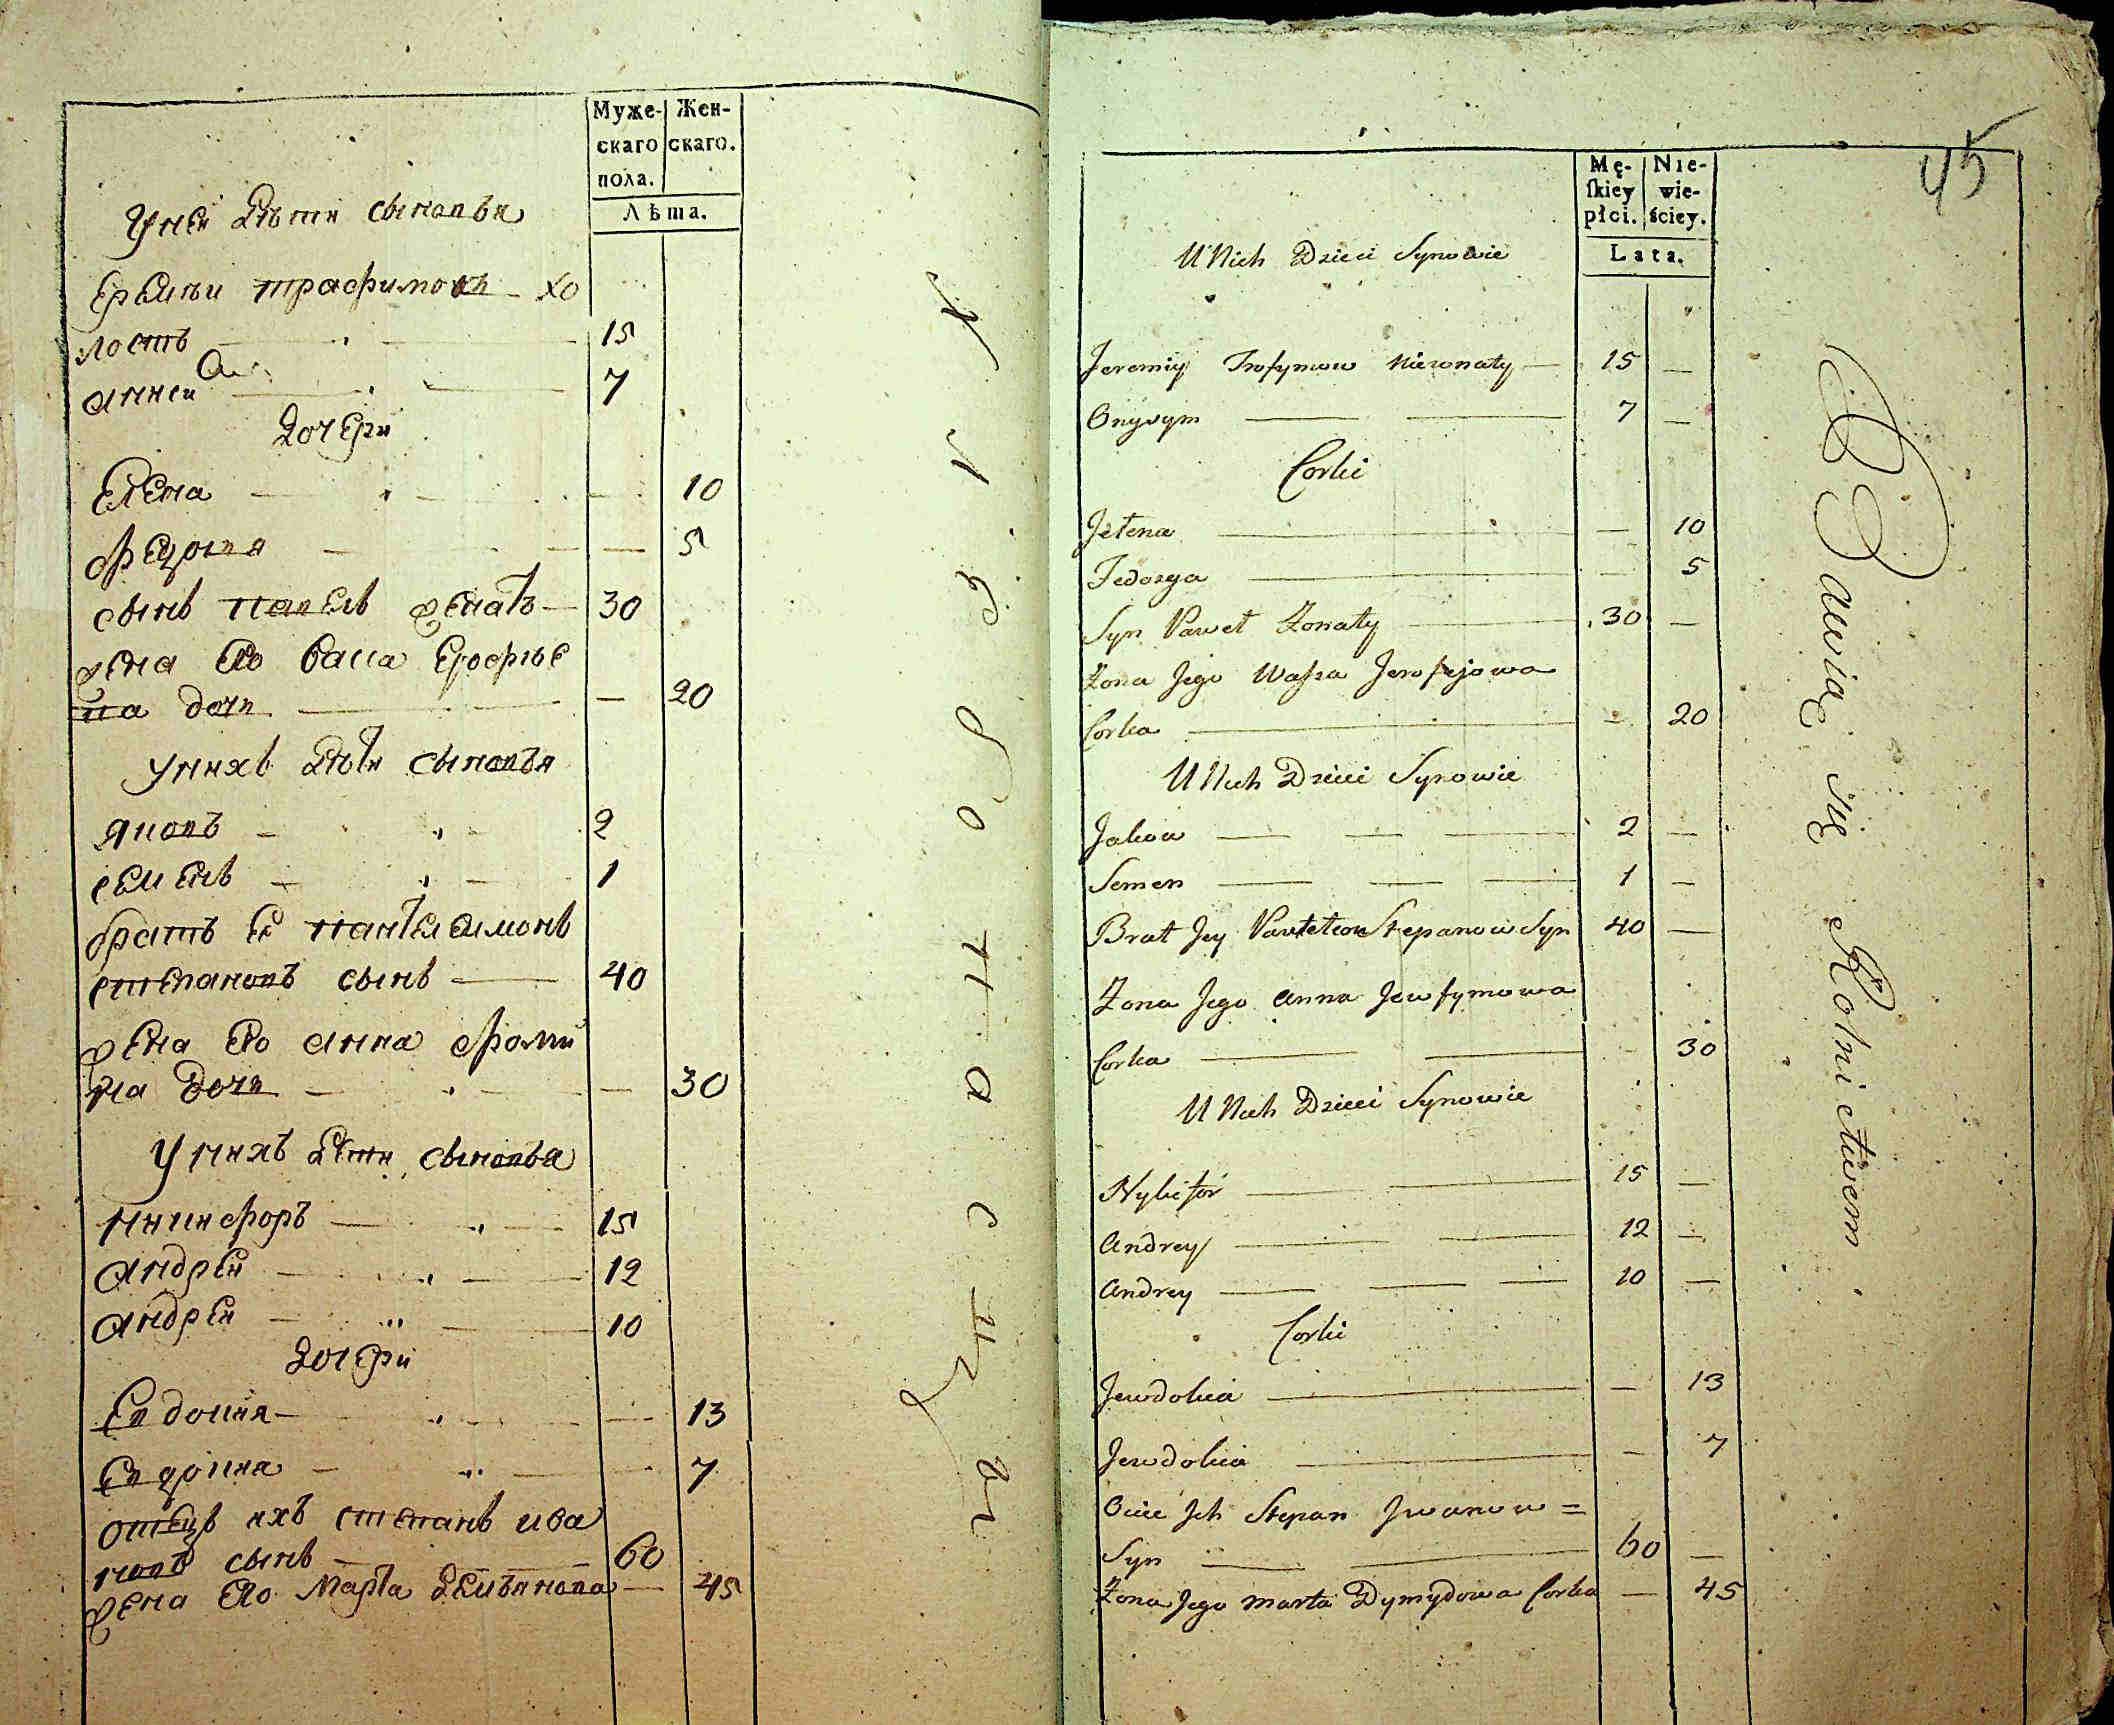 Муже-
скаго
пола.
Жен-
скаго.
Лѣта.
У ней Дѣти сыновья
Ерѣмѣй трафимовъ хо
лостъ 15
анисій 7
Дочери
Елена — 10
Федосия — 5
сынъ павелъ женатъ — 30
жена Его Васса Ерофѣе
ва дочь — 20
У нихъ Дѣти сыновья
яковъ 2
семенъ 1
братъ Её пантелеимонъ
степановъ сынъ — 40
жена Его анна
на дочь — 30
У нихъ Дѣти сыновья
никифоръ — 15
андрей — 12
андрей — 10
Дочери
Евдокия — 13
Евдокия — 7
отецъ ихъ степанъ ива
новъ сынъ — 60
жена Его Марѳа Демьянова — 45
45
Mę-
skiey
płci.
Nie-
wie-
ściey.
Lata.
U Nich Dzieci Synowie
Jeremiy Trofymow Nieżonaty — 15 —
Onysym — 7 —
Corki
Jełena — 10
Fedosya — 5
Syn Paweł Żonaty — 30 —
Żona Jego Wassa Jerofejowa
Corka — 20
U Nich Dzieci Synowie
Jakow — 2 —
Semen — 1 —
Brat Jey Stepanow Syn 40 —
Żona Jego Anna Jewfymowa
Corka — 30
U Nich Dzieci Synowie
Nykifor — 15 —
Andrey — 12 —
Andrey — 10 —
Corki
Jewdokia — 13
Jewdokia — 7
Ociec Ich Stepan Jwanow =
Syn — 60 —
Żona Jego Marta Dymydowa Corka — 45
Bawią się Rolnictwem